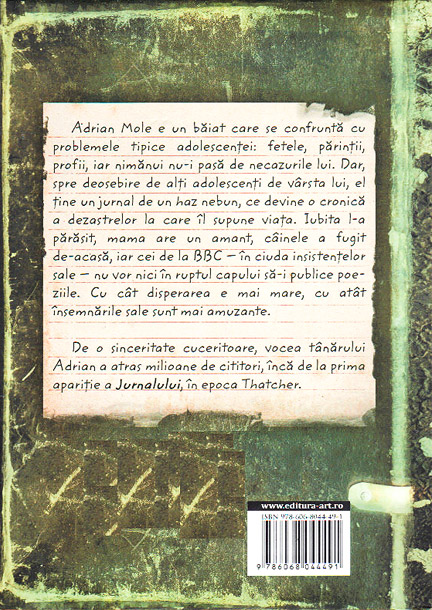 Adrian Mole e un băiat care se confruntă cu
problemele tipice adolescenței: fetele, părinții,
profii, iar nimănui nu-i pasă de necazurile lui. Dar,
spre deosebire de alți adolescenți de vârsta lui, el
ține un jurnal de un haz nebun, ce devine o cronică
a dezastrelor la care îl supune viața. Iubita l-a
părăsit, mama are un amant, câinele a fugit
de-acasă, iar cei de la BBC – în ciuda insistențelor
sale – nu vor nici în ruptul capului să-i publice poe-
ziile. Cu cât disperarea e mai mare, cu atât
însemnările sale sunt mai amuzante.
De o sinceritate cuceritoare, vocea tânărului
Adrian a atras milioane de cititori, încă de la prima
apariție a Jurnalului, în epoca Thatcher.
www.editura-art.ro
ISBN 978-606-8044-49-1
9 786068 044491